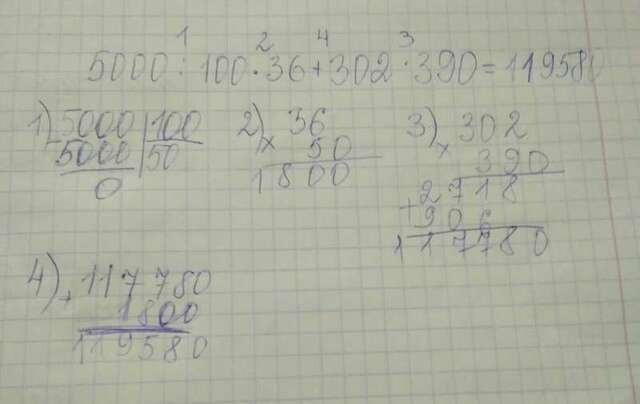 1 2 4 3
5000 : 100 · 36 + 302 · 390 = 119580
1) 5000 | 100 2) 36 3) 302
- 5000 | 50 x 50 x 390
0 1800 2718
+ 906
117780
4) 117780
+ 1800
119580